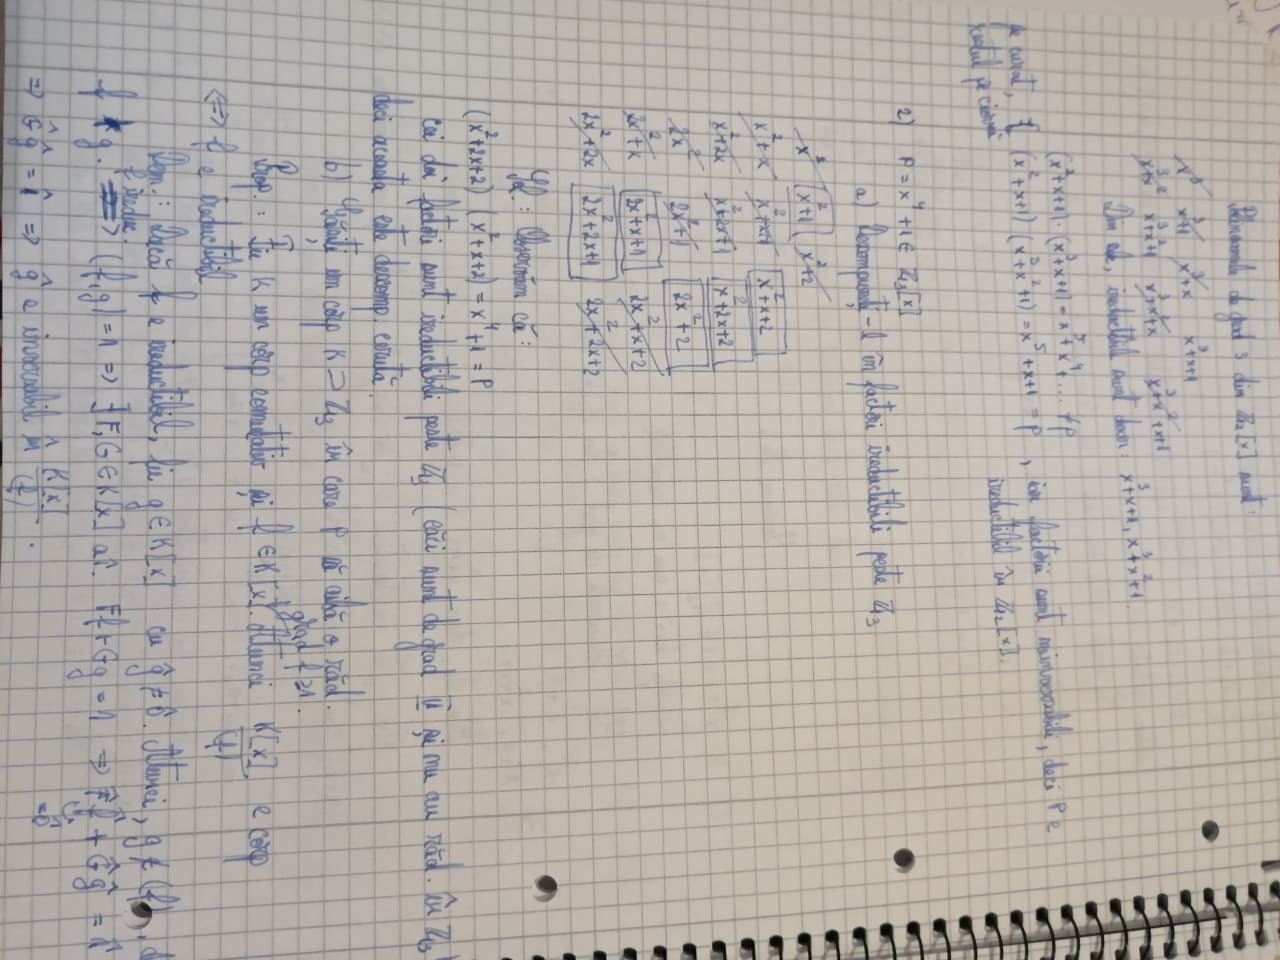 Polinoamele de grad 3 din ℤ₂[x] sunt:
x³ x³+1 x³+x x³+x+1
x³+x² x³+x²+1 x³+x²+x x³+x²+x+1
Din ele, ireductibile sunt doar: x³+x+1, x³+x²+1.
(x²+x+1)·(x³+x+1) = x⁵+x⁴+... ≠ P
(x²+x+1)(x³+x²+1) = x⁵+x+1 = P, iar factorii sunt neinversabili, deci P e
ireductibil în ℤ₂[x].
2) P = x⁴+1 ∈ ℤ₃[x]
a) Descompuneți-l în factori ireductibili peste ℤ₃
x² x²+1 x²+2
x²+x x²+x+1 x²+x+2
x²+2x x²+2x+1 x²+2x+2
2x² 2x²+1 2x²+2
2x²+x 2x²+x+1 2x²+x+2
2x²+2x 2x²+2x+1 2x²+2x+2
Sol.: Observăm că:
(x²+2x+2)(x²+x+2) = x⁴+1 = P
cei doi factori sunt ireductibili peste ℤ₃ (căci sunt de grad II și nu au răd. în ℤ₃)
deci aceasta este descomp. cerută.
b) Găsiți un corp K ⊃ ℤ₃ în care P să aibă o răd.
Prop.: Fie K un corp comutativ și f ∈ K[x], grad f ≥ 1. Atunci K[x]/(f) e corp
⟺ f e ireductibil
Dem.: Dacă f e ireductibil, fie g ∈ K[x] cu ĝ ≠ 0̂. Atunci, g ∉ (f), d
f ∤ g. f ireduc. ⟹ (f,g) = 1 ⟹ ∃ F,G ∈ K[x] aî. Ff+Gg = 1 ⟹ F̂f̂ + Ĝĝ = 1̂
= 0̂
⟹ Ĝĝ = 1̂ ⟹ ĝ e inversabil în K[x]/(f).